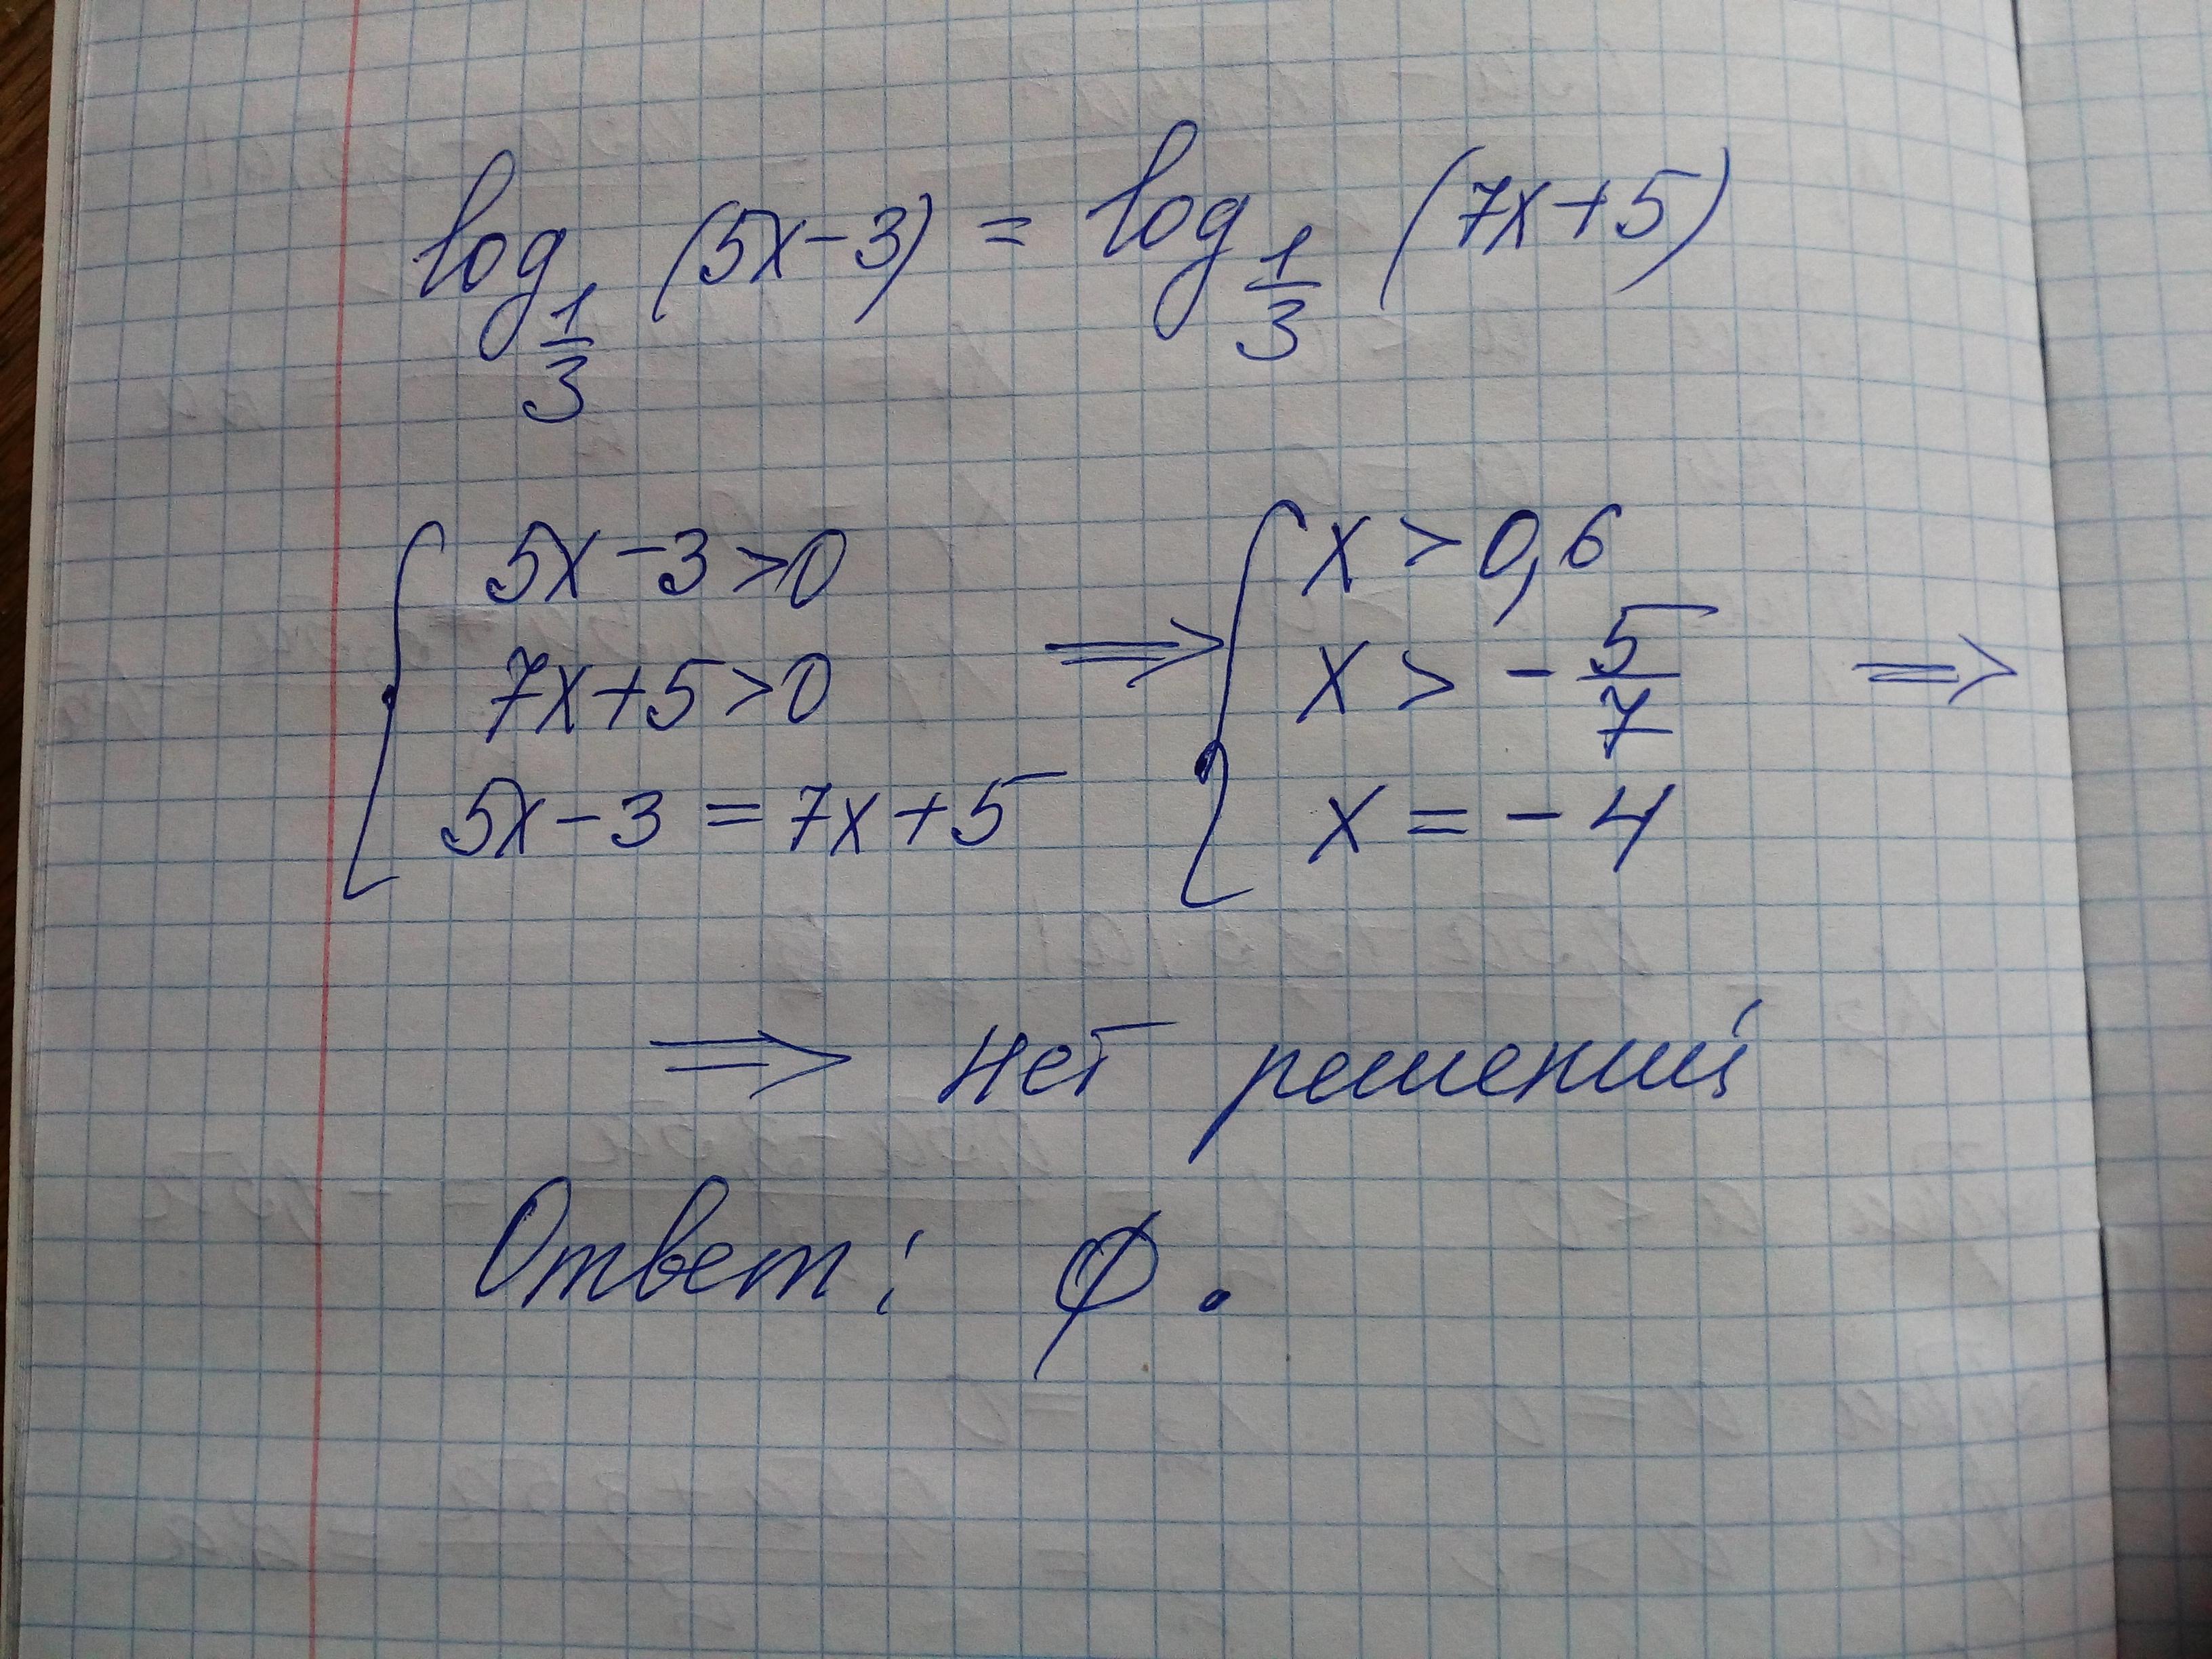 log 1/3 (5x-3) = log 1/3 (7x+5)
{ 5x-3>0 ⟹ { x > 0,6
7x+5>0 x > - 5/7 ⟹
5x-3 = 7x+5 x = -4
⟹ нет решений
Ответ: ∅.